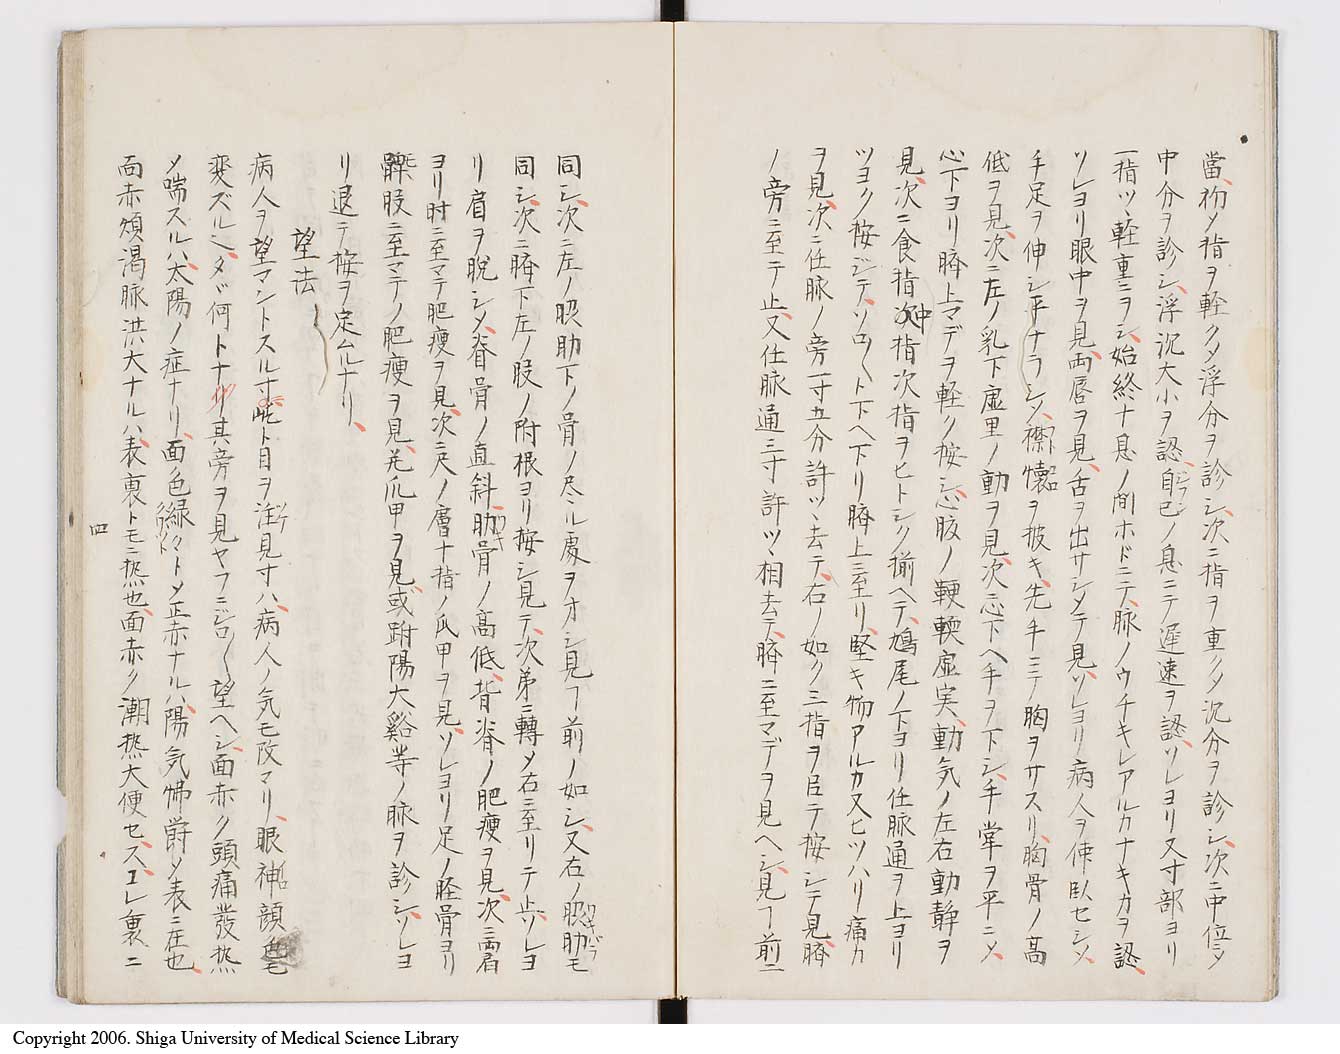 當初〆指ヲ軽ク〆浮分ヲ診シ次ニ指ヲ重ク〆沉分ヲ診シ次ニ中位ニ〆
中分ヲ診シ浮沉大小ヲ認自已ノ息ニテ遅速ヲ認ソレヨリ又寸部ヨリ
一指ツヽ軽重ヲシ始終十息ノ間ホドニテ脉ノウチキレアルカナキカヲ認
ソレヨリ眼中ヲ見両唇ヲ見舌ヲ出サシメテ見ソレヨリ病人ヲ仰臥セシメ
手足ヲ伸シ平ナラシメ襟懐ヲ披キ先手ニテ胸ヲサスリ胸骨ノ高
低ヲ見次ニ左ノ乳下虚里ノ動ヲ見次ニ心下ヘ手ヲ下シ手掌ヲ平ニメ
心下ヨリ臍上マデヲ軽ク按シ心腹ノ鞕軟虚実動気ノ左右動静ヲ
見次ニ食指中指次指ヲヒトシク揃ヘテ鳩尾ノ下ヨリ任脉通ヲ上ヨリ
ツヨク按ジテソロ〱ト下ヘ下リ臍上ニ至リ堅キ物アルカ又ヒツハリ痛カ
ヲ見次ニ任脉ノ旁一寸五分許ツヽ去テ右ノ如ク三指ヲ以テ按シテ見臍
ノ旁ニ至テ止又任脉通三寸許ツヽ相去テ臍ニ至マデヲ見ヘシ見ヿ前ニ
同シ次ニ左ノ脇肋下ノ骨ノ尽ル處ヲオシ見ヿ前ノ如シ又右ノ脇肋モ
同シ次ニ臍下左ノ股ノ附根ヨリ按シ見テ次第ニ轉〆右ニ至リテ止ソレヨ
リ肩ヲ脱シメ脊骨ノ直斜肋骨ノ高低背脊ノ肥瘦ヲ見次ニ両肩
ヨリ肘ニ至マテ肥瘦ヲ見次ニ尺ノ膚十指ノ爪甲ヲ見ソレヨリ足ノ脛骨ヨリ
髀股ニ至マテノ肥瘦ヲ見足爪甲ヲ見或跗陽大谿等ノ脉ヲ診シソレヨ
リ退テ按ヲ定ムルナリ
望法
病人ヲ望マントスル寸屹ト目ヲ注見寸ハ病人ノ気モ改マリ眼神顔色モ
変ズルレタヾ何トナリ其旁ヲ見ヤフニジロ〱望ヘシ面赤ク頭痛發热
〆喘スルハ太陽ノ症ナリ面色緑々ト〆正赤ナルハ陽気怫欝〆表ニ在也
面赤煩渇脉洪大ナルハ表裏トモニ热也面赤ク潮热大便セスコレ裏ニ
四
Copyright 2006. Shiga University of Medical Science Library